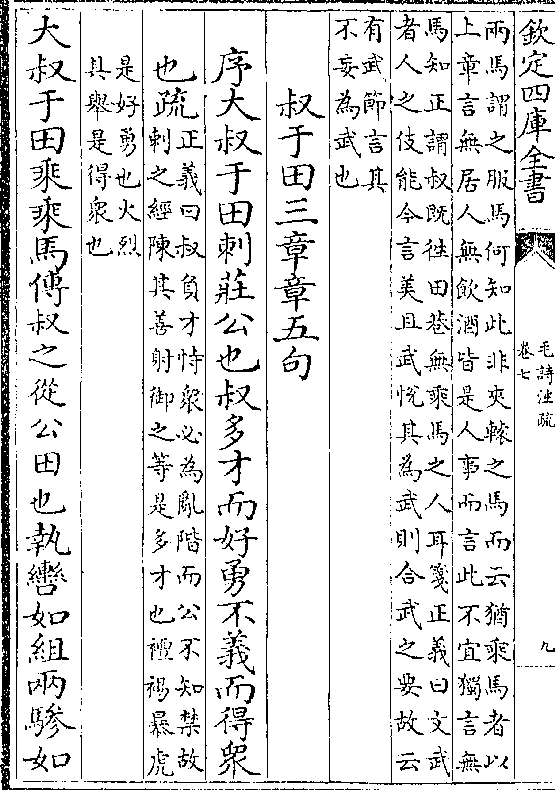 欽定四庫全書
毛詩注疏
卷七
九
兩馬謂之服馬何知此非夾轅之馬而云猶乘馬者以
上章言無居人無飲酒皆是人事而言此不宜獨言無
馬知正謂叔既往田巷無乘馬之人耳箋正義曰文武
者人之伎能今言美且武悅其為武則合武之要故云
有武節言其
不妄為武也
叔于田三章章五句
序大叔于田刺莊公也叔多才而好勇不義而得衆
也疏
正義曰叔負才恃衆必為亂階而公不知禁故
刺之經陳其善射御之等是多才也襢裼暴虎
是好勇也火烈
具舉是得衆也
大叔于田乘乘馬傳叔之從公田也執轡如組兩驂如